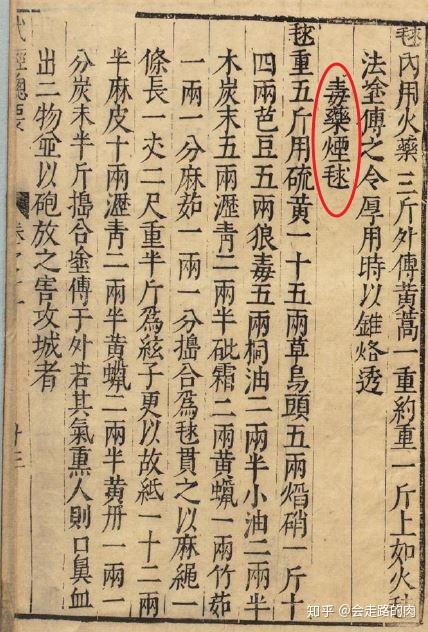 毬內用火藥三斤外傅黃蒿一重約重一斤上如火毬
法塗傅之令厚用時以錐烙透
毒藥煙毬
毬重五斤用硫黃一十五兩草烏頭五兩焰硝一斤十
四兩芭豆五兩狼毒五兩桐油二兩半小油二兩半
木炭末五兩瀝青二兩半砒霜二兩黃蠟一兩竹茹
一兩一分麻茹一兩一分搗合爲毬貫之以麻繩一
條長一丈二尺重半斤爲絃子更以故紙一十二兩
半麻皮十兩瀝青二兩半黃蠟二兩半黃丹一兩一
分炭末半斤搗合塗傅于外若其氣熏人則口鼻血
出二物並以砲放之害攻城者
武經總要
卷之十一
知乎 @会走路的肉